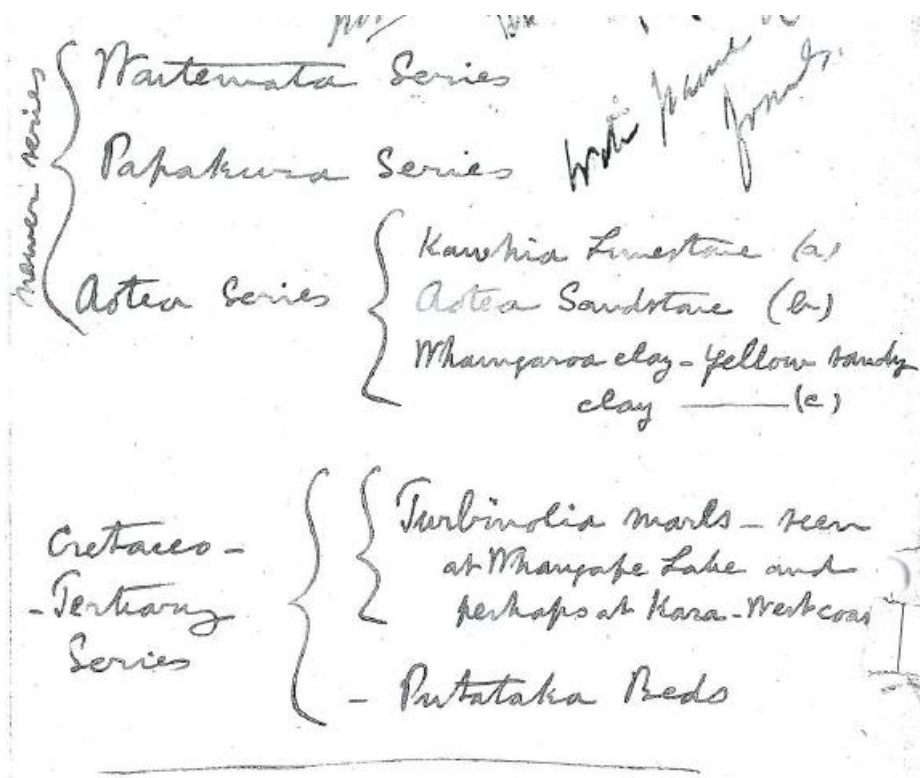 newer series
Waitemata Series
Papakura Series
Aotea Series
Kawhia Limestone (a)
Aotea Sandstone (b)
Whaingaroa clay - yellow sandy
clay —— (c)
Cretaceo -
- Tertiary
Series
Turbinolia marls - seen
at Whangape Lake and
perhaps at Kara - West coas
- Putataka Beds